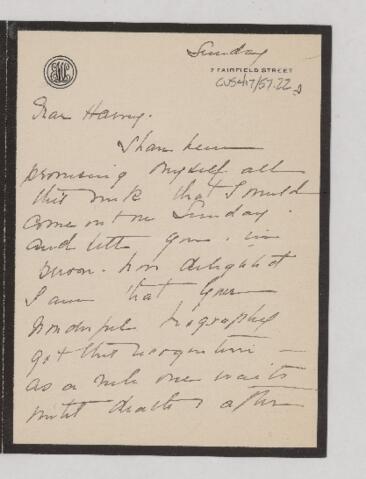 Sunday
7 FAIRFIELD STREET
CUS417/57.22
Dear Harvey.
I have been
promising myself all
this week that I would
come out on Sunday.
and tell you in
person. how delighted
I am that your
wonderful biography
got this recognition —
as a rule one waits
until death & after